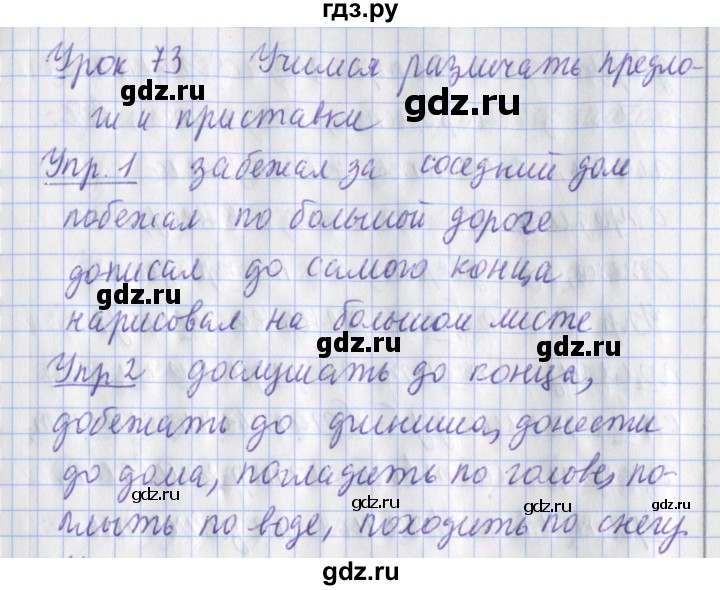 гдз.ру
Урок 73 Учимся различать предло-
gdz.ru
ги и приставки
Упр. 1 забежал за соседний дом
gdz.ru
побежал по большой дороге
дописал до самого конца
gdz.ru
нарисовал на большом листе
gdz.ru
gdz.ru
Упр 2 дослушать до конца,
gdz.ru
добежать до финиша, донести
до дома, погладить по голове, по-
gdz.ru gdz.ru gdz.ru
плыть по воде, походить по снегу
gdz.ru
gdz.ru